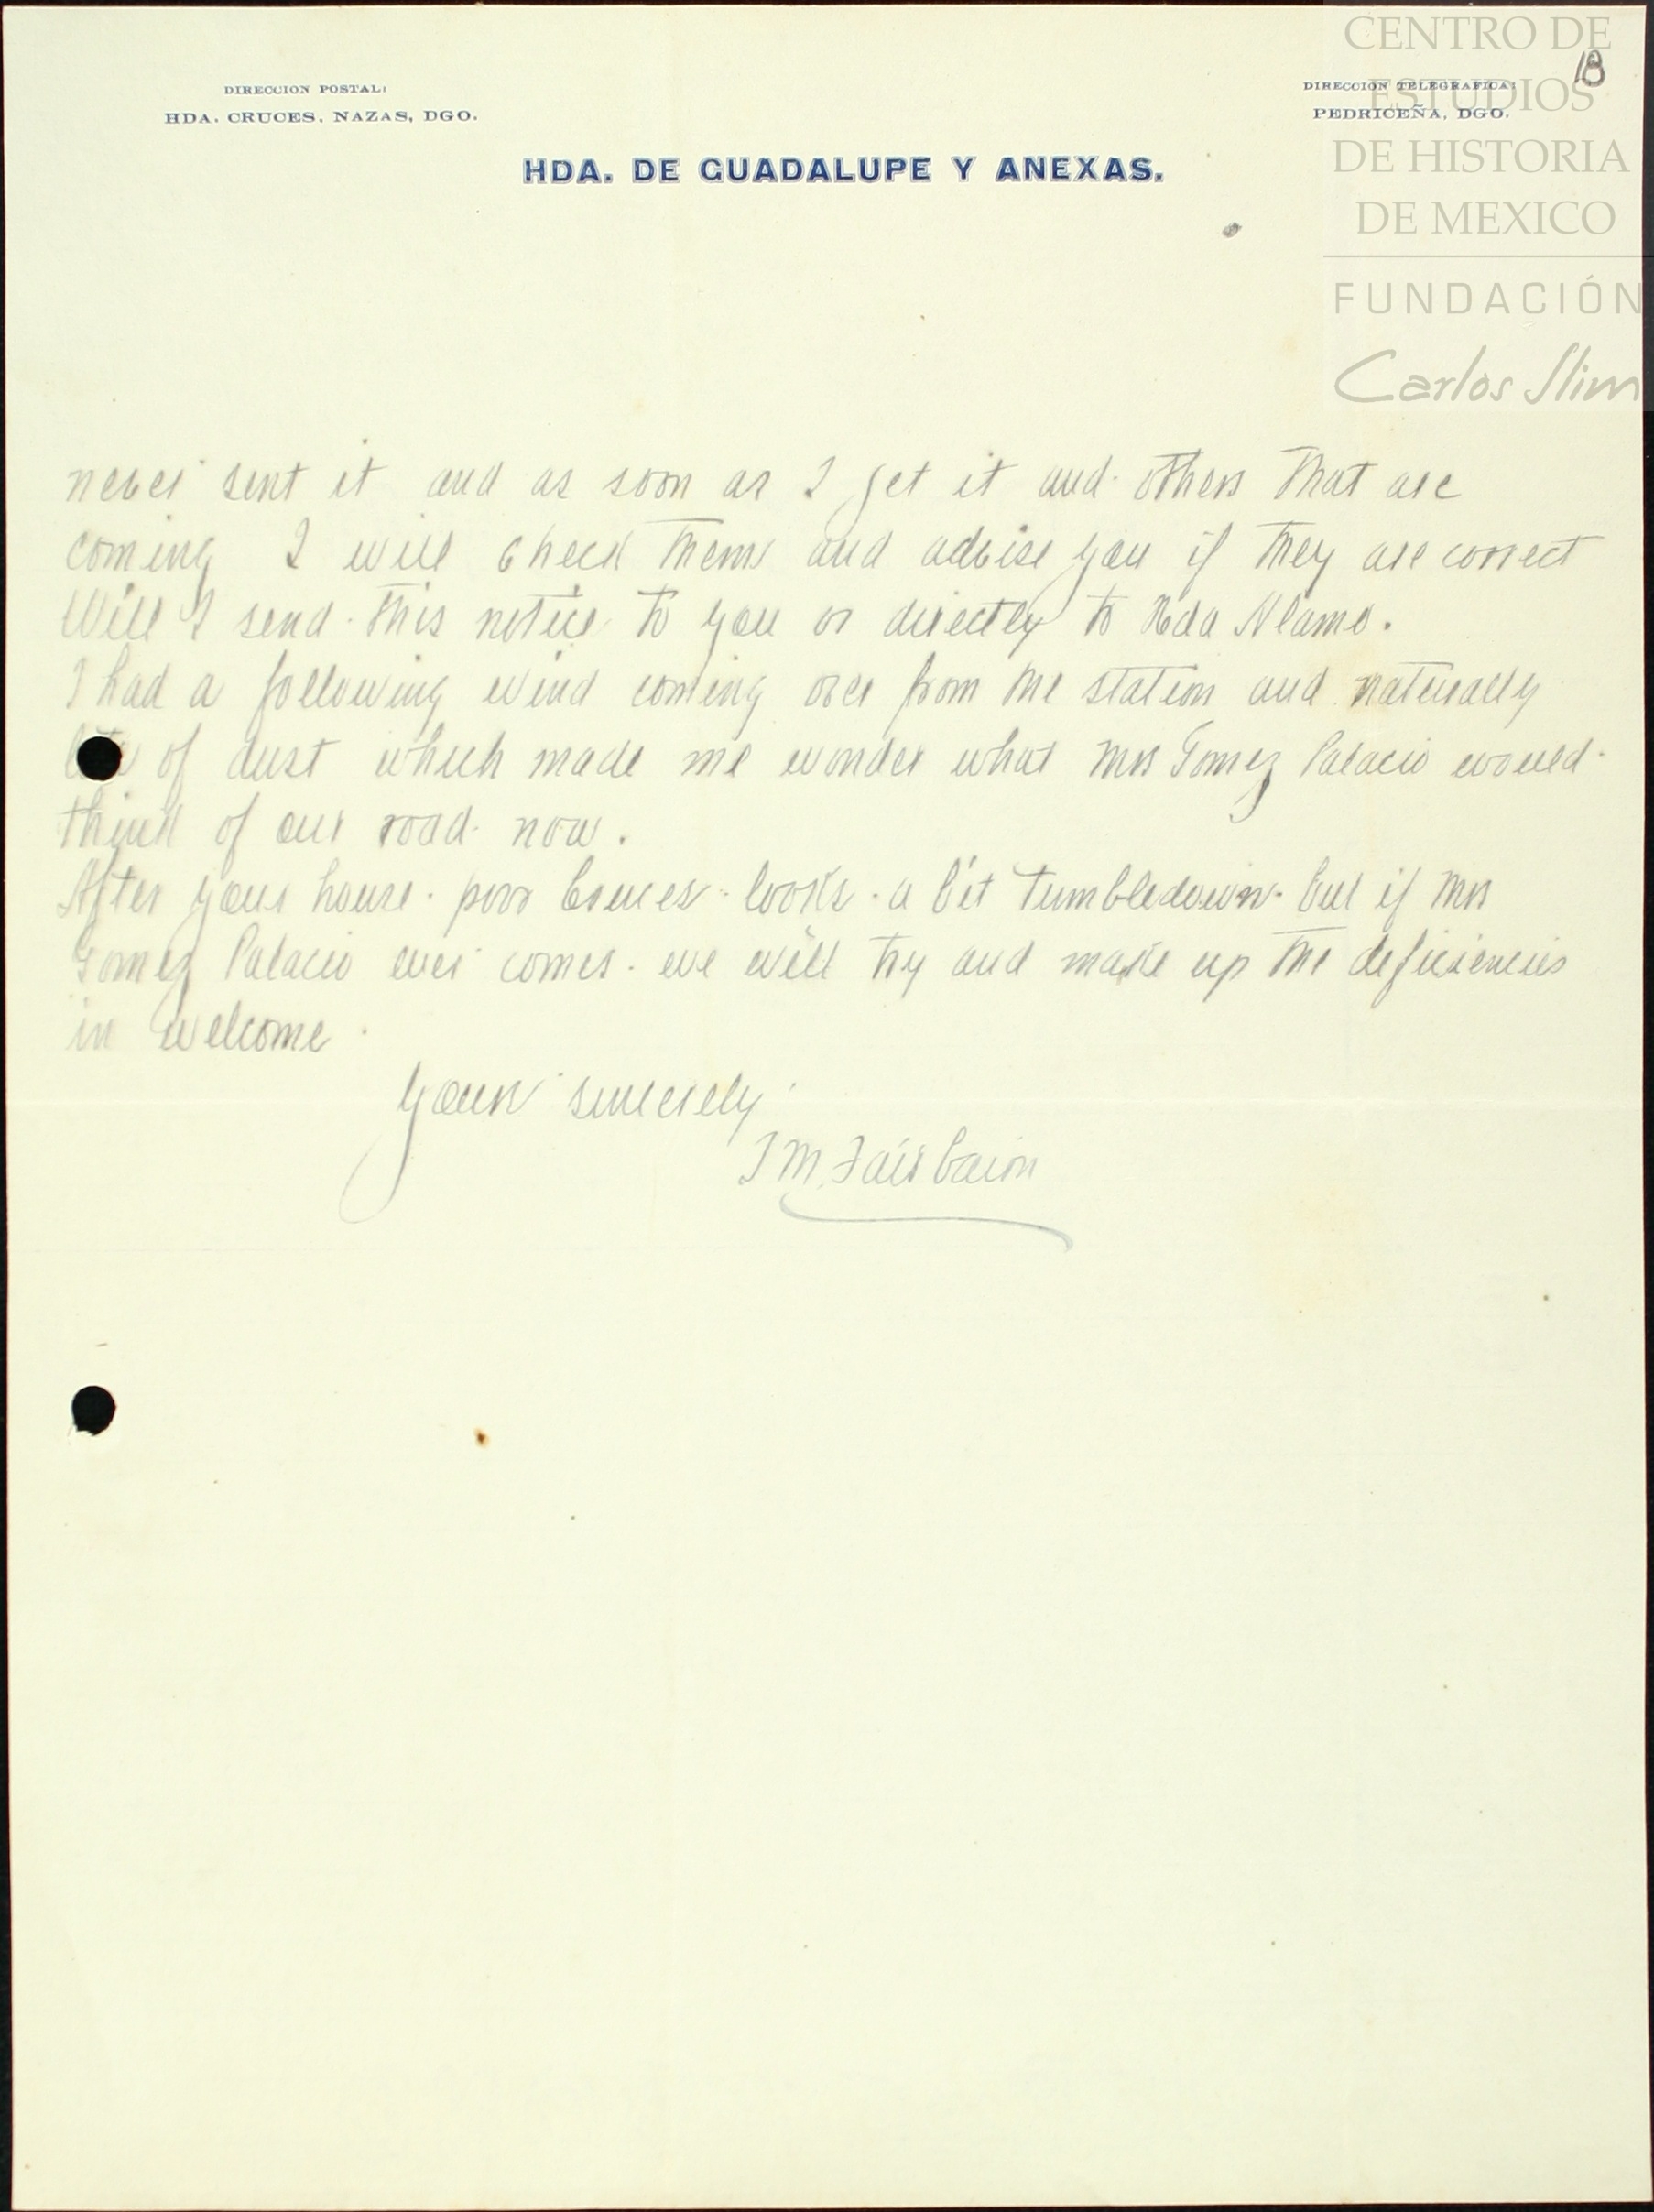 CENTRO DE
ESTUDIOS
DE HISTORIA
DE MEXICO
FUNDACIÓN
Carlos Slim
18
DIRECCION POSTAL:
HDA. CRUCES, NAZAS, DGO.
DIRECCION TELEGRAFICA:
PEDRICEÑA, DGO.
HDA. DE GUADALUPE Y ANEXAS.
never sent it and as soon as I get it and others that are
coming I will check them and advise you if they are correct
Will I send this notice to you or directly to Hda Alamo.
I had a following wind coming over from the station and naturally
of dust which made me wonder what Mrs Gomez Palacio would
think of our road now.
After your house - poor Cruces - looks a bit tumbledown - but if Mrs
Gomez Palacio ever comes - we will try and make up the deficiencies
in welcome.
Yours sincerely
Fairbairn